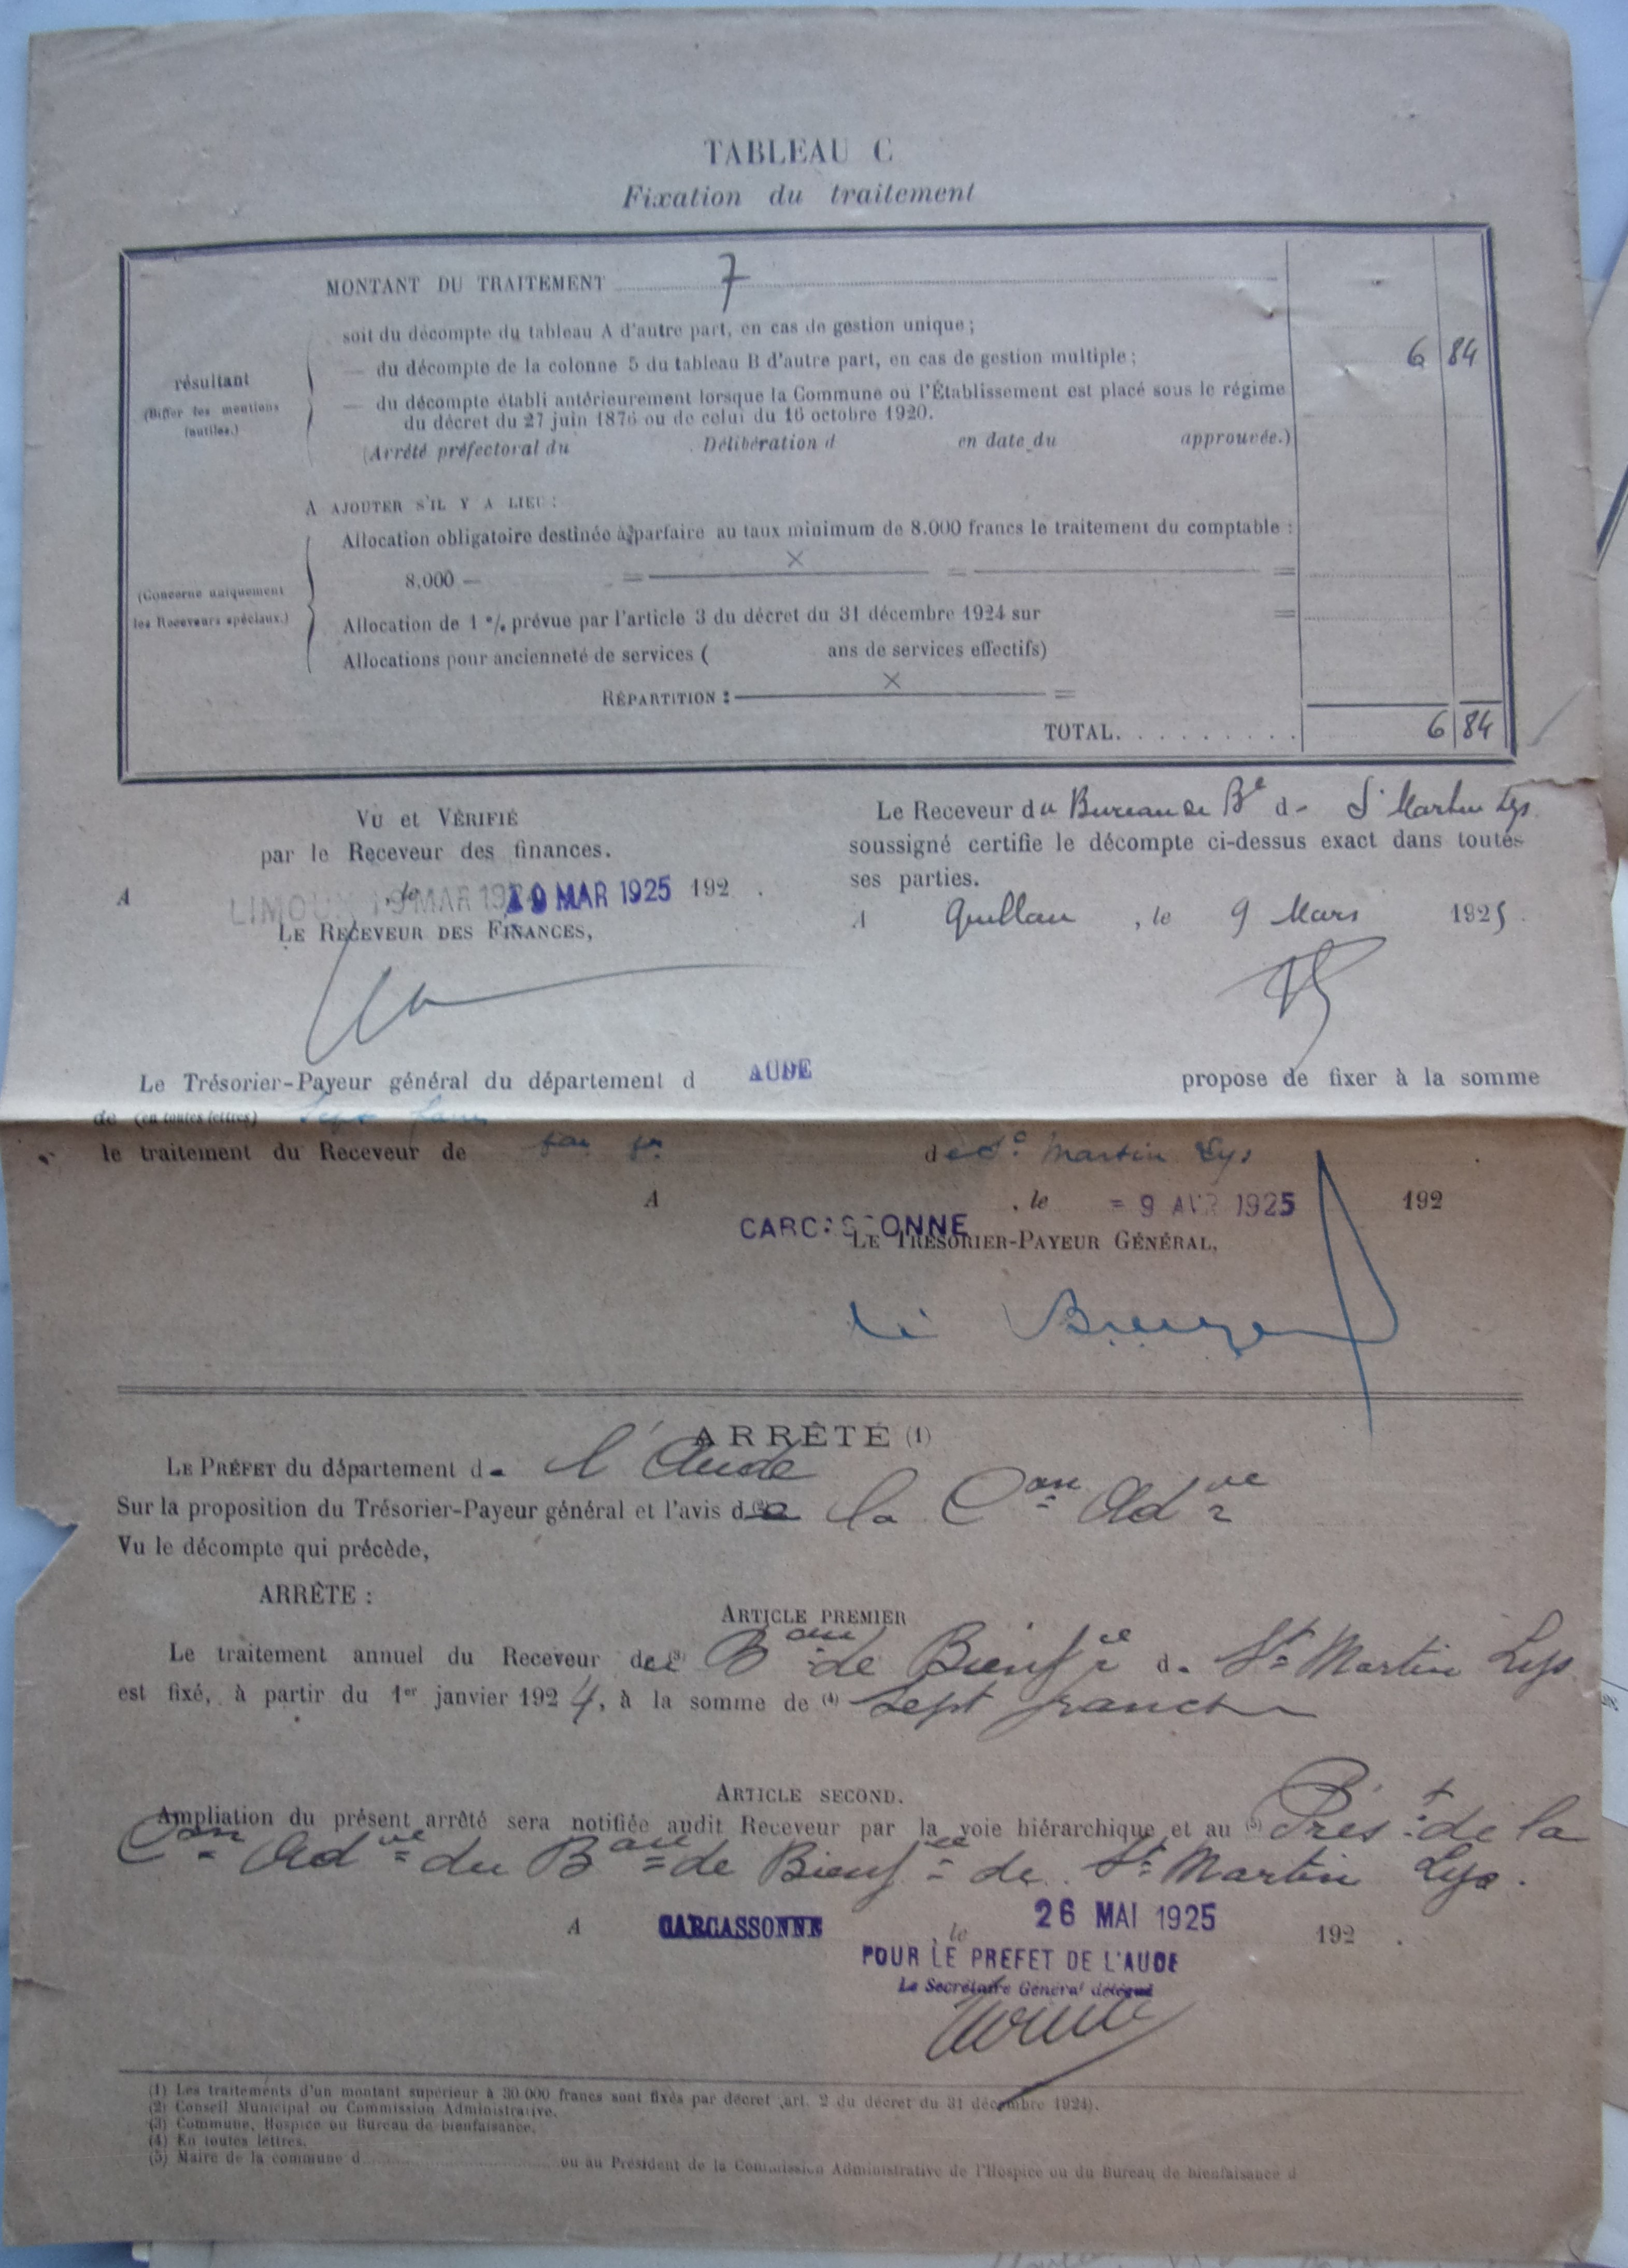 TABLEAU C
Fixation du traitement
MONTANT DU TRAITEMENT 7
soit du décompte du tableau A d'autre part, en cas de gestion unique ;
— du décompte de la colonne 5 du tableau B d'autre part, en cas de gestion multiple ; 6 84
résultant
(Biffer les mentions inutiles.)
— du décompte établi antérieurement lorsque la Commune ou l'Établissement est placé sous le régime
du décret du 27 juin 1876 ou de celui du 16 octobre 1920.
(Arrêté préfectoral du Délibération d en date du approuvée.)
A AJOUTER S'IL Y A LIEU :
Allocation obligatoire destinée à parfaire au taux minimum de 8.000 francs le traitement du comptable :
×
8.000 — = = =
(Concerne uniquement
les Receveurs spéciaux.)
Allocation de 1 % prévue par l'article 3 du décret du 31 décembre 1924 sur =
Allocations pour ancienneté de services ( ans de services effectifs)
×
RÉPARTITION : =
TOTAL. . . . . . . . . . 6 84
VU et VÉRIFIÉ
par le Receveur des finances.
A LIMOUX, le 19 MAR 1925 192 .
LE RECEVEUR DES FINANCES,
Le Receveur du Bureau de Bce d- St Martin Lys
soussigné certifie le décompte ci-dessus exact dans toutes
ses parties.
A Quillan , le 9 Mars 1925 .
Le Trésorier-Payeur général du département d AUDE propose de fixer à la somme
de (en toutes lettres) Sept francs
le traitement du Receveur de de St Martin Lys
A CARCASSONNE , le = 9 AVR 1925 192
LE TRÉSORIER-PAYEUR GÉNÉRAL,
ARRÊTÉ (1)
LE PRÉFET du département de l'Aude
Sur la proposition du Trésorier-Payeur général et l'avis d (2) e la Con Adve
Vu le décompte qui précède,
ARRÊTE :
ARTICLE PREMIER
Le traitement annuel du Receveur de (3) Bau de Bienfce d. St Martin Lys
est fixé, à partir du 1er janvier 1924, à la somme de (4) Sept francs
ARTICLE SECOND.
Ampliation du présent arrêté sera notifiée audit Receveur par la voie hiérarchique et au (5) Prést de la
Con Adve du Bau de Bienfce de St Martin Lys.
A CARCASSONNE le 26 MAI 1925 192 .
POUR LE PREFET DE L'AUDE
Le Secrétaire Général délégué
(1) Les traitements d'un montant supérieur à 30.000 francs sont fixés par décret (art. 2 du décret du 31 décembre 1924).
(2) Conseil Municipal ou Commission Administrative.
(3) Commune, Hospice ou Bureau de bienfaisance.
(4) En toutes lettres.
(5) Maire de la commune d ou au Président de la Commission Administrative de l'Hospice ou du Bureau de bienfaisance d